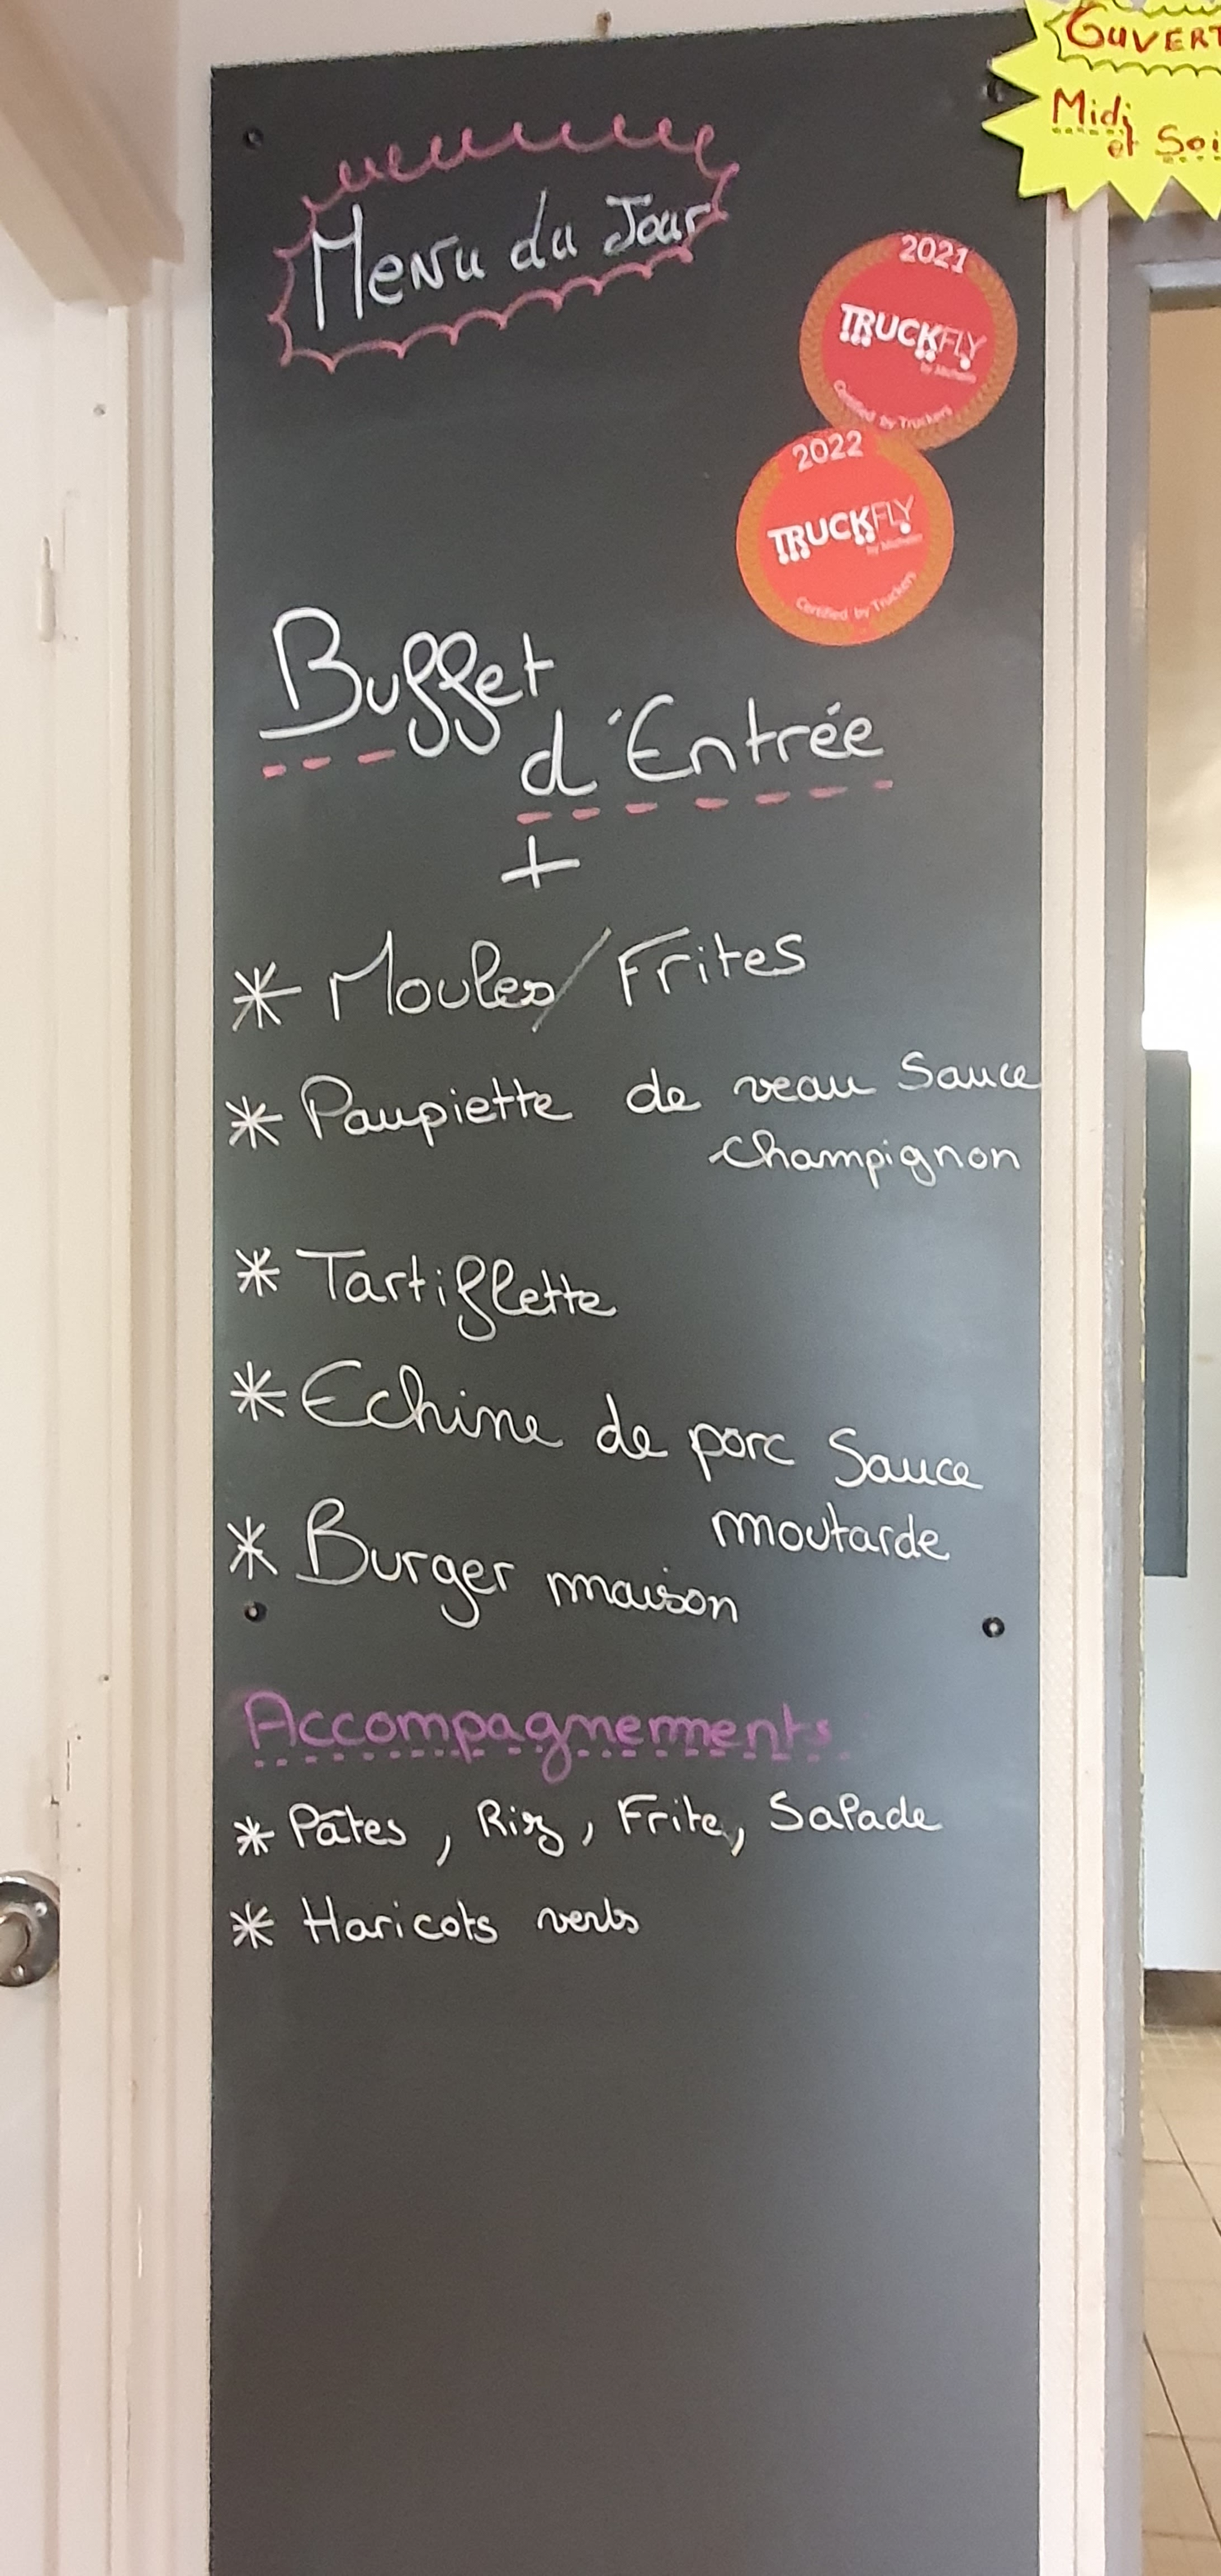 OUVERT
Midi
et Soi
Menu du Jour
2021
TRUCKFLY
by Michelin
Certified by Truckers
2022
TRUCKFLY
by Michelin
Certified by Truckers
Buffet
d'Entrée
+
* Moules/Frites
* Paupiette de veau Sauce
champignon
* Tartiflette
* Echine de porc Sauce
moutarde
* Burger maison
Accompagnements
* Pâtes, Riz, Frite, Salade
* Haricots verts